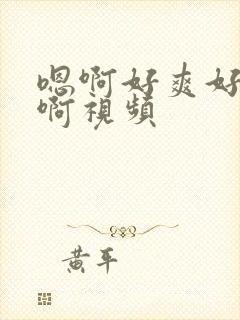 嗯啊好爽好
啊視頻
黄平